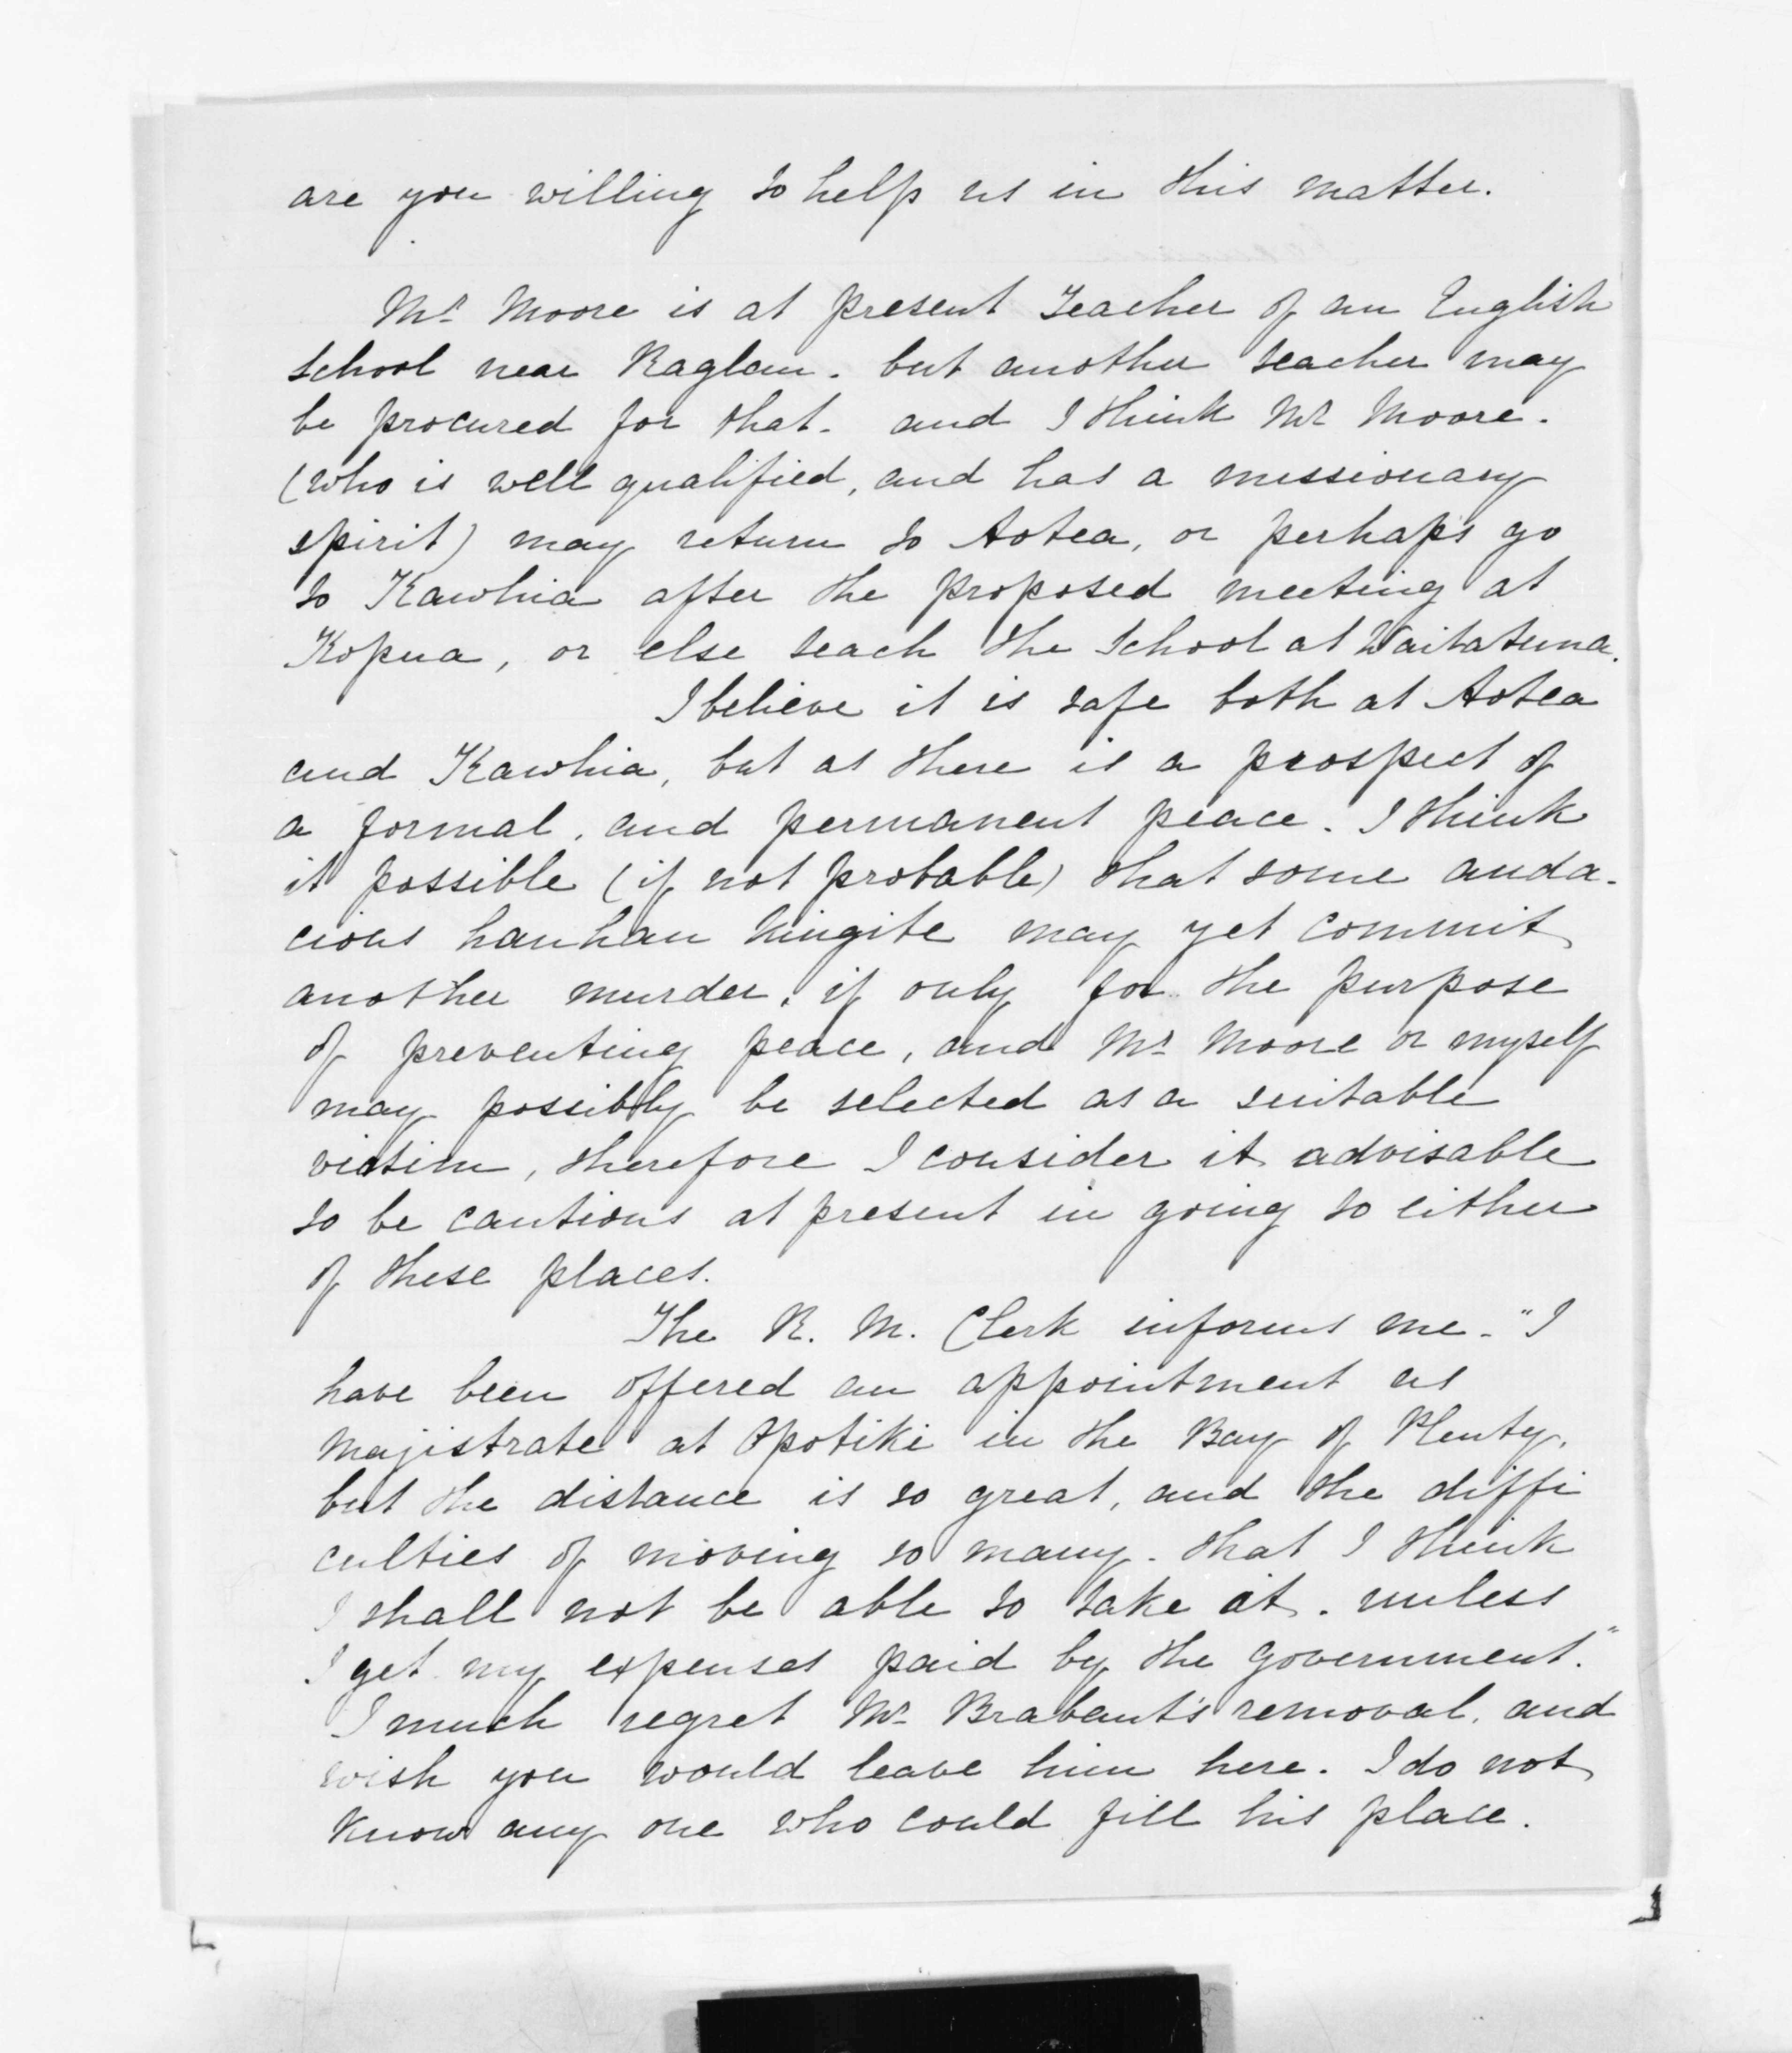 are you willing to help us in this matter.
Mr Moore is at present Teacher of an English
School near Raglan. but another teacher may
be procured for that. and I think Mr Moore.
(who is well qualified, and has a missionary
spirit) may return to Aotea, or perhaps go
to Kawhia after the proposed meeting at
Kopua, or else teach the School at Waitatuna.
I believe it is safe both at Aotea
and Kawhia, but as there is a prospect of
a formal, and permanent peace. I think
it possible (if not probable) that some auda-
cious hauhau kingite may yet commit
another murder, if only for the purpose
of preventing peace, and Mr Moore or myself
may possibly be selected as a suitable
victim, therefore I consider it advisable
to be cautious at present in going to either
of these places.
The R. M. Clerk informs me - "I
have been offered an appointment as
Majistrate at Opotiki in the Bay of Plenty,
but the distance is so great, and the diffi
culties of moving so many. that I think
I shall not be able to take it. unless
I get my expenses paid by the Government."
I much regret Mr Brabant's removal, and
wish you would leave him here. I do not
know any one who could fill his place.